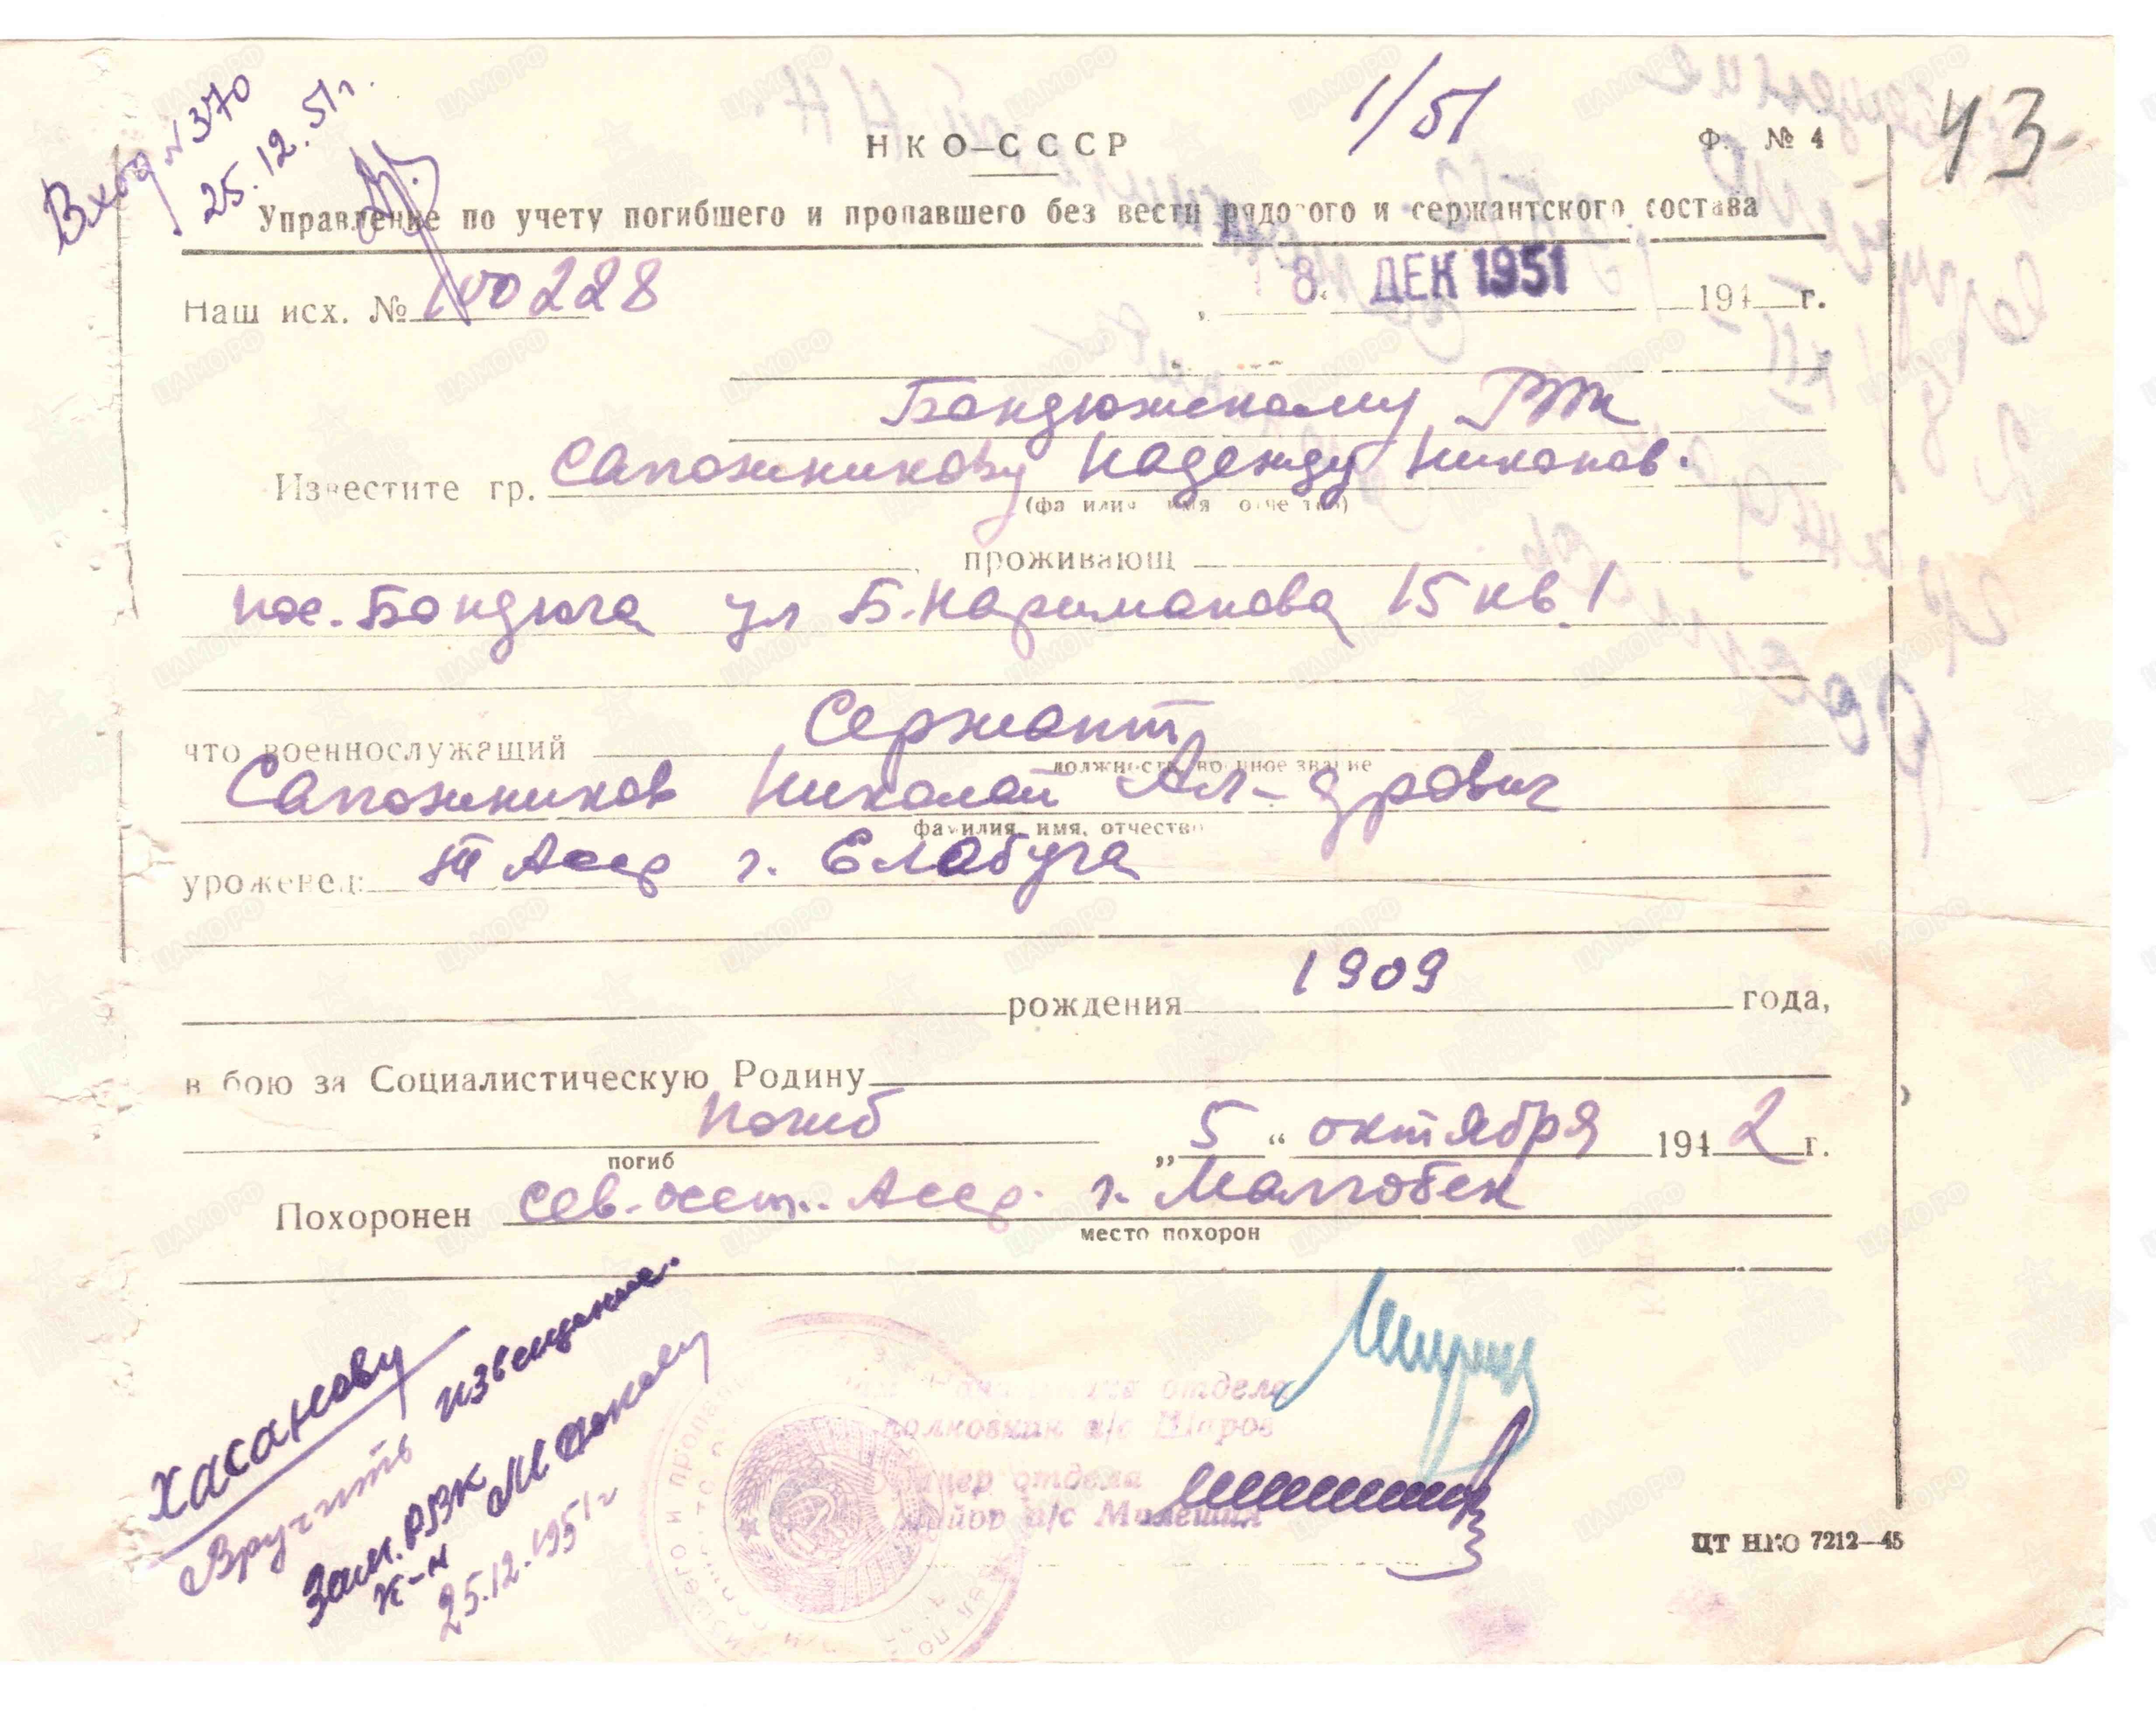 Вход №370
25.12.51г.
1/51
43
НКО—СССР
Ф. № 4
Управление по учету погибшего и пропавшего без вести рядового и сержантского состава
Наш исх. № 100228
„ 18 “ ДЕК 1951 194 г.
Бондюжскому РВК
Известите гр. Сапожникову Надежду Никонов.
(фамилия имя отчество)
, проживающ
пос. Бондюга ул Б. Нариманова 15 кв. 1
что военнослужащий Сержант
должность, военное звание
Сапожников Николай Ал-дрович
фамилия, имя, отчество
уроженец: Т Асср г. Елабуга
рождения 1909 года,
в бою за Социалистическую Родину
погиб „ 5 “ октября 1942 г.
погиб
Похоронен Сев-осет. Асср. г. Малгобек
место похорон
Хасанову
Вручить извещение.
Зам. РВК
к-н
25.12.1951г
отдела
полковник а/с Шаров
отдела
майор а/с
ЦТ НКО 7212—45